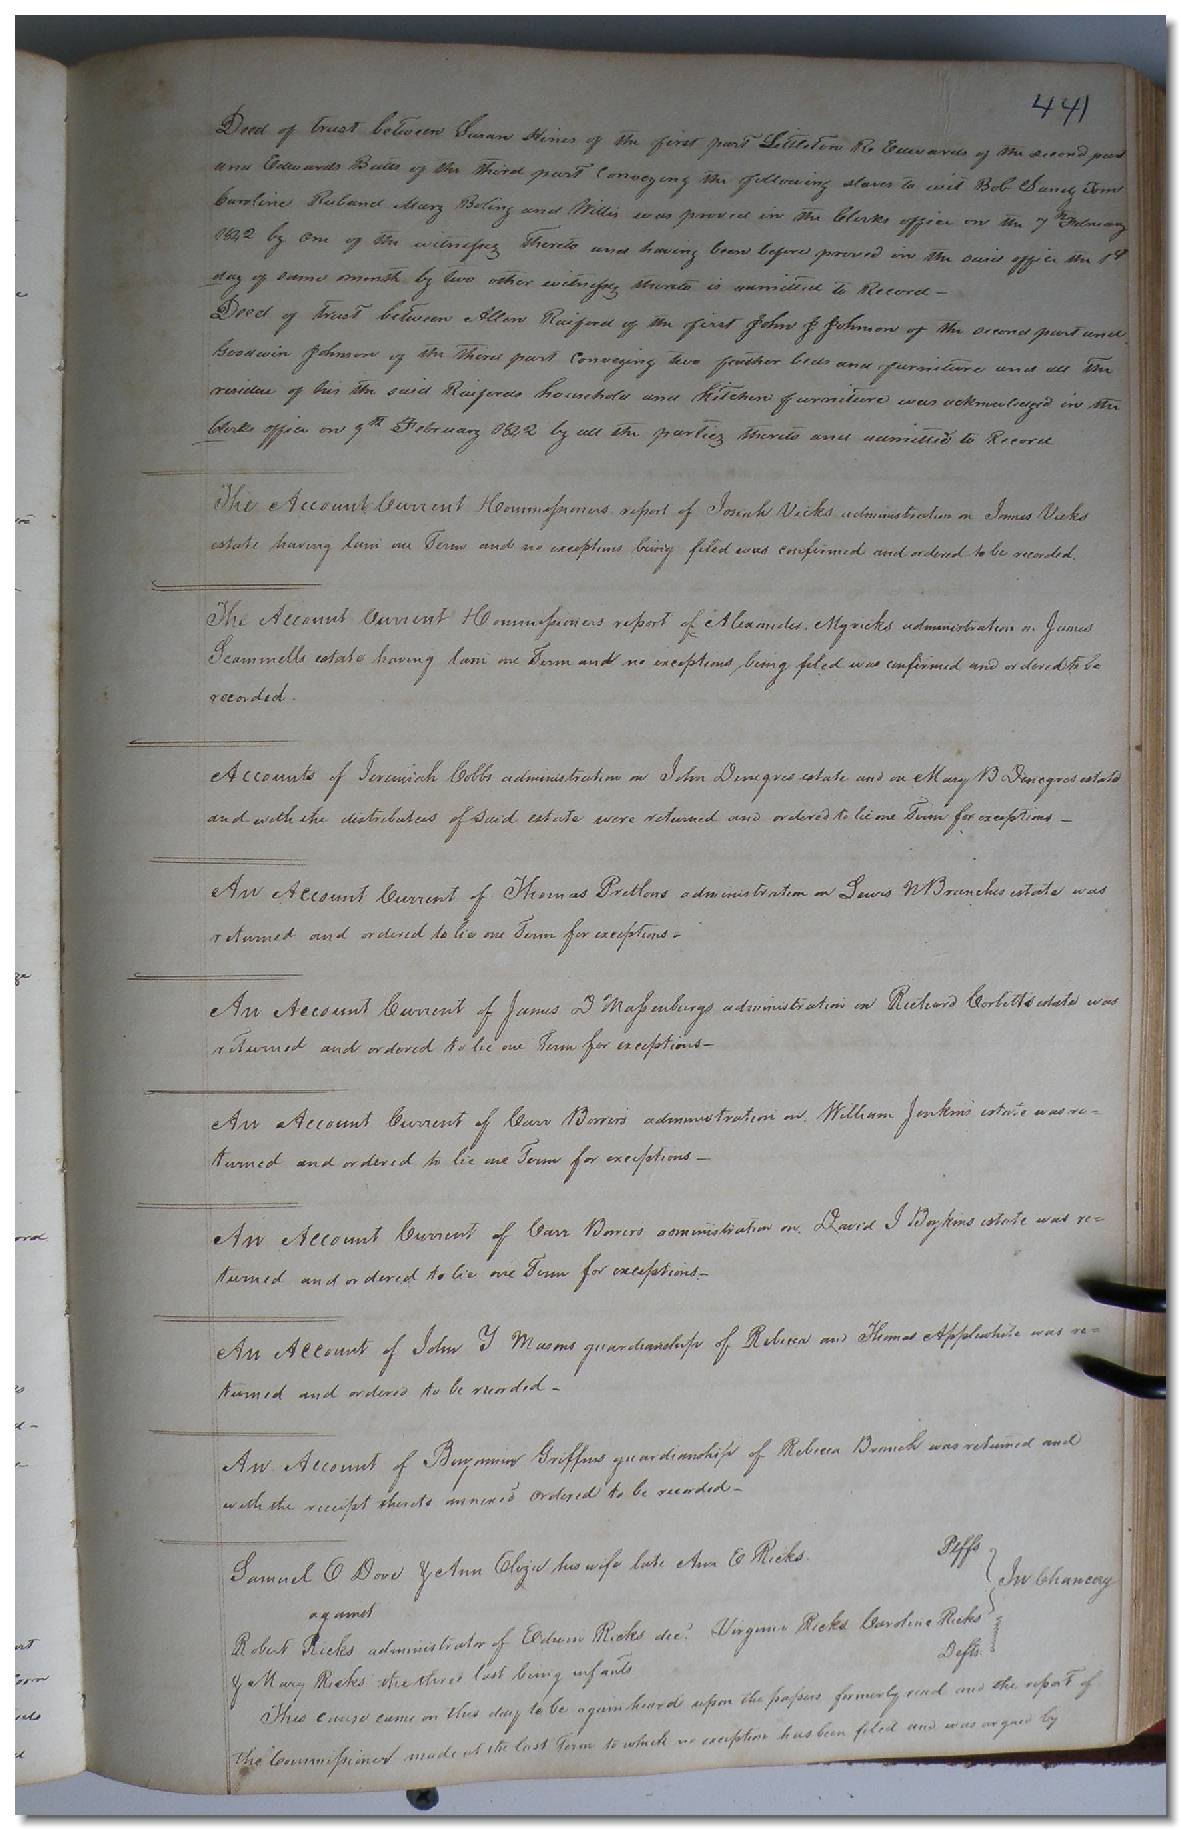 441
Deed of trust between Susan Hines of the first part Littleton R Edwards of the second part
and Edwards Butts of the third part Conveying the following slaves to wit Bob Sandy Tom
Caroline Mary Boling and Willis was proved in the Clerks office on the 7th February
1842 by one of the witnesses thereto and having been before proved in the said office the 1st
day of same month by two other witnesses thereto is admitted to Record –
Deed of trust between Allen Raiford of the first John J Johnson of the second part and
Goodwin Johnson of the third part Conveying two feather beds and furniture and all the
residue of his the said Raifords household and kitchen furniture was acknowledged in the
Clerks office on 9th February 1842 by all the parties thereto and admitted to Record
The Account Current & Commissioners report of Josiah Vicks administration on James Vicks
estate having lain one Term and no exceptions being filed was confirmed and ordered to be recorded.
The Account Current & Commissioners report of Alexander Myricks administration on James
Scammells estate having lain one Term and no exceptions being filed was confirmed and ordered to be
recorded.
Accounts of Jeremiah Cobbs administration on John Denegres estate and on Mary B Denegres estate
and with the distributees of said estate were returned and ordered to lie one Term for exceptions –
An Account Current of Thomas Pretlows administration on Lewis W Branches estate was
returned and ordered to lie one Term for exceptions –
An Account Current of James D Massenburgs administration on Richard Corbetts estate was
returned and ordered to lie one Term for exceptions –
An Account Current of Carr Bowers administration on William Jenkins estate was re=
turned and ordered to lie one Term for exceptions –
An Account Current of Carr Bowers administration on David J Boykins estate was re=
turned and ordered to lie one Term for exceptions –
An Account of John Y Masons guardianship of Rebecca and Thomas Applewhite was re=
turned and ordered to be recorded –
An Account of Benjamin Griffins guardianship of Rebecca Branch was returned and
with the receipt thereto annexed ordered to be recorded –
Samuel O Dove & Ann Eliza his wife late Ann E Ricks. Plffs
against In Chancery
Robert Ricks administrator of Edwin Ricks decd. Virginia Ricks Caroline Ricks
& Mary Ricks the three last being infants Defts.
This cause came on this day to be again heard upon the papers formerly read and the report of
the Commissioner made at the last Term to which no exception has been filed and was argued by